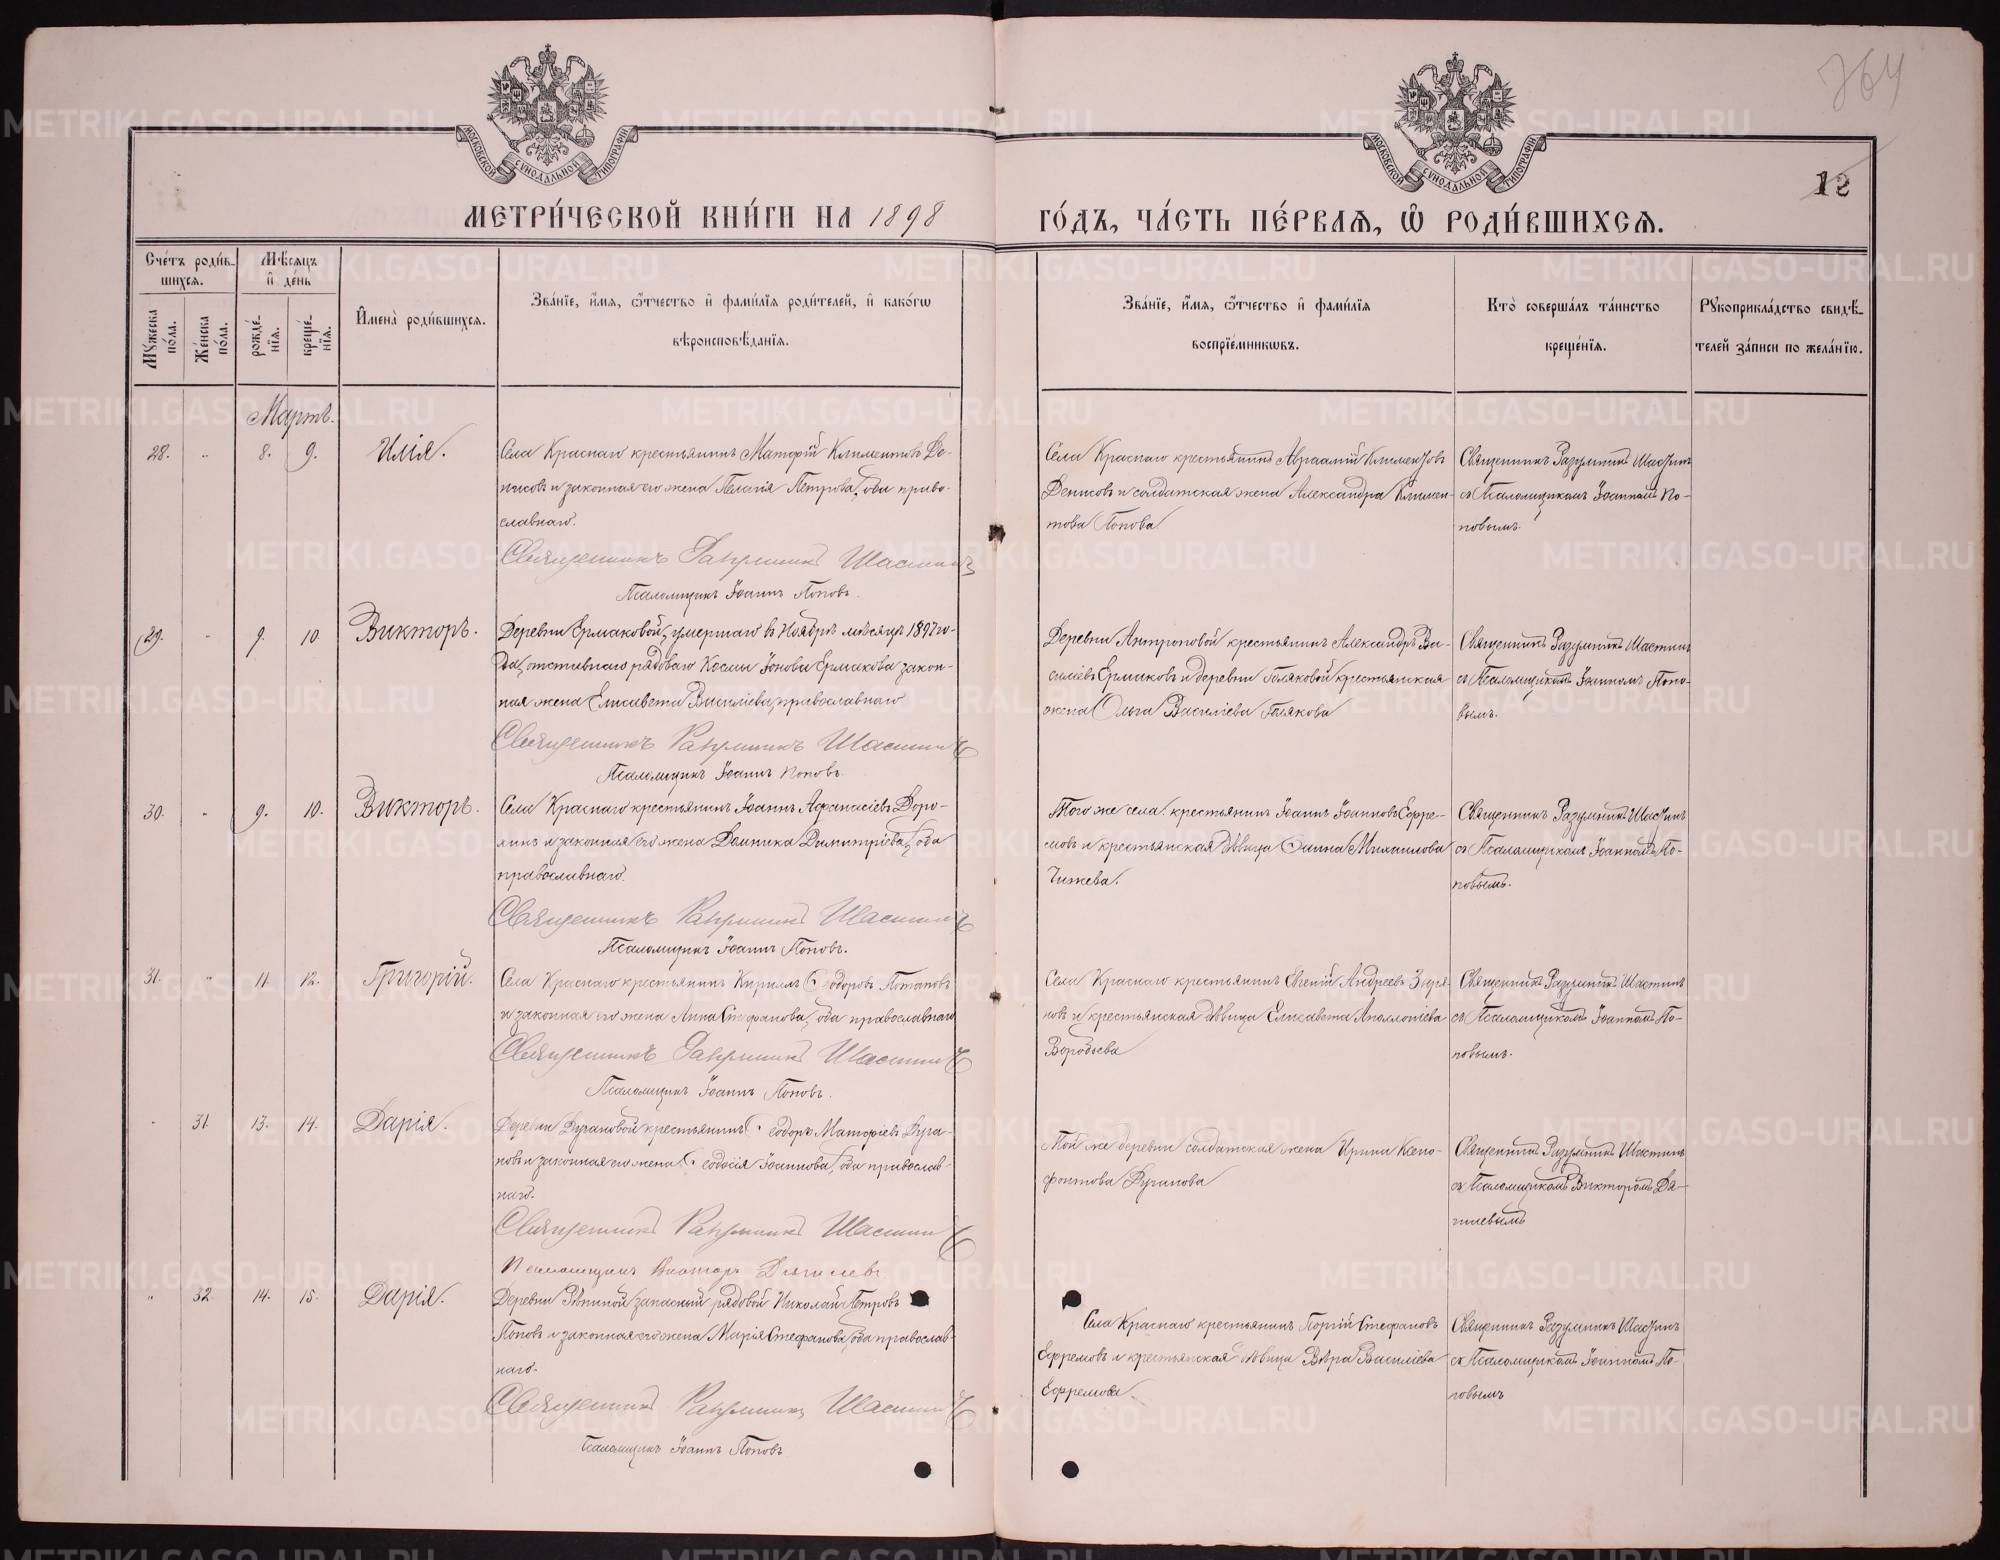 764
12
МОСКОВСКОЙ СУНОДАЛЬНОЙ ТИПОГРАФІИ
МОСКОВСКОЙ СУНОДАЛЬНОЙ ТИПОГРАФІИ
МЕТРИ́ЧЕСКОЙ КНИ́ГИ НА 1898 ГО́ДЪ, ЧА́СТЬ ПЕ́РВАѦ, Ѿ РОДИ́ВШИХСѦ.
Сче́тъ роди́вшихсѧ.
Мꙋ́жеска по́ла.
Же́нска по́ла.
Мѣ́сѧцъ и҆ де́нь
рожде́нїѧ.
креще́нїѧ.
И҆мена̀ роди́вшихсѧ.
Зва́нїе, и҆́мѧ, ѻ҆́тчество и҆ фами́лїѧ роди́телей, и҆ како́гѡ
вѣроисповѣ́данїѧ.
Зва́нїе, и҆́мѧ, ѻ҆́тчество и҆ фами́лїѧ
воспрїе́мникѡвъ.
Кто̀ соверша́лъ та́инство
креще́нїѧ.
Рꙋкоприкла́дство свидѣ́-
телей за́писи по жела́нїю.
Мартъ.
28. " 8. 9. Илія.
Села Краснаго крестьянинъ Матѳій Климентовъ Де-
нисовъ и законная его жена Пелагія Петрова, оба право-
славнаго.
Священникъ Разумникъ Шастинъ
Псаломщикъ Іоаннъ Поповъ.
Села Краснаго крестьянинъ Авраамій Климентовъ
Денисовъ и солдатская жена Александра Климен-
това Попова
Священникъ Разумникъ Шастинъ
съ Псаломщикомъ Іоанномъ По-
повымъ.
29. " 9. 10. Викторъ.
Деревни Ермаковой, умершаго въ Ноябрѣ мѣсяцѣ 1897 го-
да, отставнаго рядоваго Космы Іонова Ермакова закон-
ная жена Елисавета Василіева, православнаго
Священникъ Разумникъ Шастинъ
Псаломщикъ Іоаннъ Поповъ.
Деревни Антроповой крестьянинъ Александръ Ва-
силіевъ Ермаковъ и деревни Поляковой крестьянская
жена Ольга Василіева Полякова
Священникъ Разумникъ Шастинъ
съ Псаломщикомъ Іоанномъ Попо-
вымъ.
30. " 9. 10. Викторъ.
Села Краснаго крестьянинъ Іоаннъ Аѳанасіевъ Доро-
нинъ и законная его жена Домника Димитріева, оба
православнаго.
Священникъ Разумникъ Шастинъ
Псаломщикъ Іоаннъ Поповъ.
Того же села крестьянинъ Іоаннъ Іоанновъ Ефре-
мовъ и крестьянская дѣвица Михаилова
Чижева.
Священникъ Разумникъ Шастинъ
съ Псаломщикомъ Іоанномъ По-
повымъ.
31. " 11. 12. Григорій.
Села Краснаго крестьянинъ Кириллъ Ѳеодоровъ Потаповъ
и законная его жена Анна Стефанова, оба православнаго
Священникъ Разумникъ Шастинъ
Псаломщикъ Іоаннъ Поповъ.
Села Краснаго крестьянинъ Евгеній Андреевъ Зыря-
новъ и крестьянская дѣвица Елисавета Аполлоніева
Воробьева
Священникъ Разумникъ Шастинъ
съ Псаломщикомъ Іоанномъ По-
повымъ.
" 31. 13. 14. Дарія.
Деревни Дугановой крестьянинъ Ѳеодоръ Матѳіевъ Дуга-
новъ и законная его жена Ѳеодосія Іоаннова, оба православ-
наго.
Священникъ Разумникъ Шастинъ
Псаломщикъ Викторъ Дягилевъ
Той же деревни солдатская жена Ирина Ксено-
фонтова Дуганова
Священникъ Разумникъ Шастинъ
съ Псаломщикомъ Викторомъ Дя-
гилевымъ
" 32 14. 15. Дарія.
Деревни Рѣпиной запасный рядовой Николай Петровъ
Поповъ и законная его жена Марія Стефанова, оба православ-
наго.
Священникъ Разумникъ Шастинъ
Псаломщикъ Іоаннъ Поповъ
Села Краснаго крестьянинъ Стефановъ
Ефремовъ и крестьянская дѣвица Вѣра Василіева
Ефремова.
Священникъ Разумникъ Шастинъ
съ Псаломщикомъ Іоанномъ По-
повымъ
METRIKI.GASO-URAL.RU